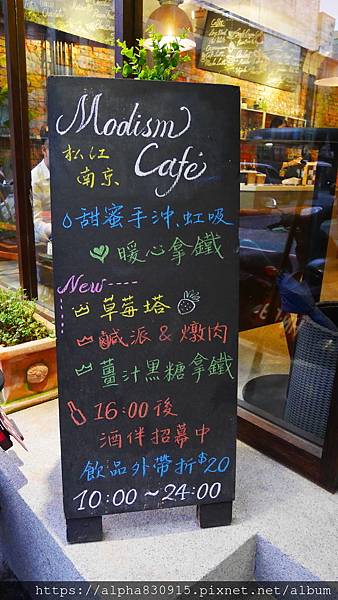 Modism
松江
南京
Café
甜蜜手沖、虹吸
暖心拿鐵
New
草莓塔
鹹派 & 燉肉
薑汁黑糖拿鐵
16:00 後
酒伴招募中
飲品外帶折 $20
10:00~24:00
https://alpha830915.pixnet.net/album